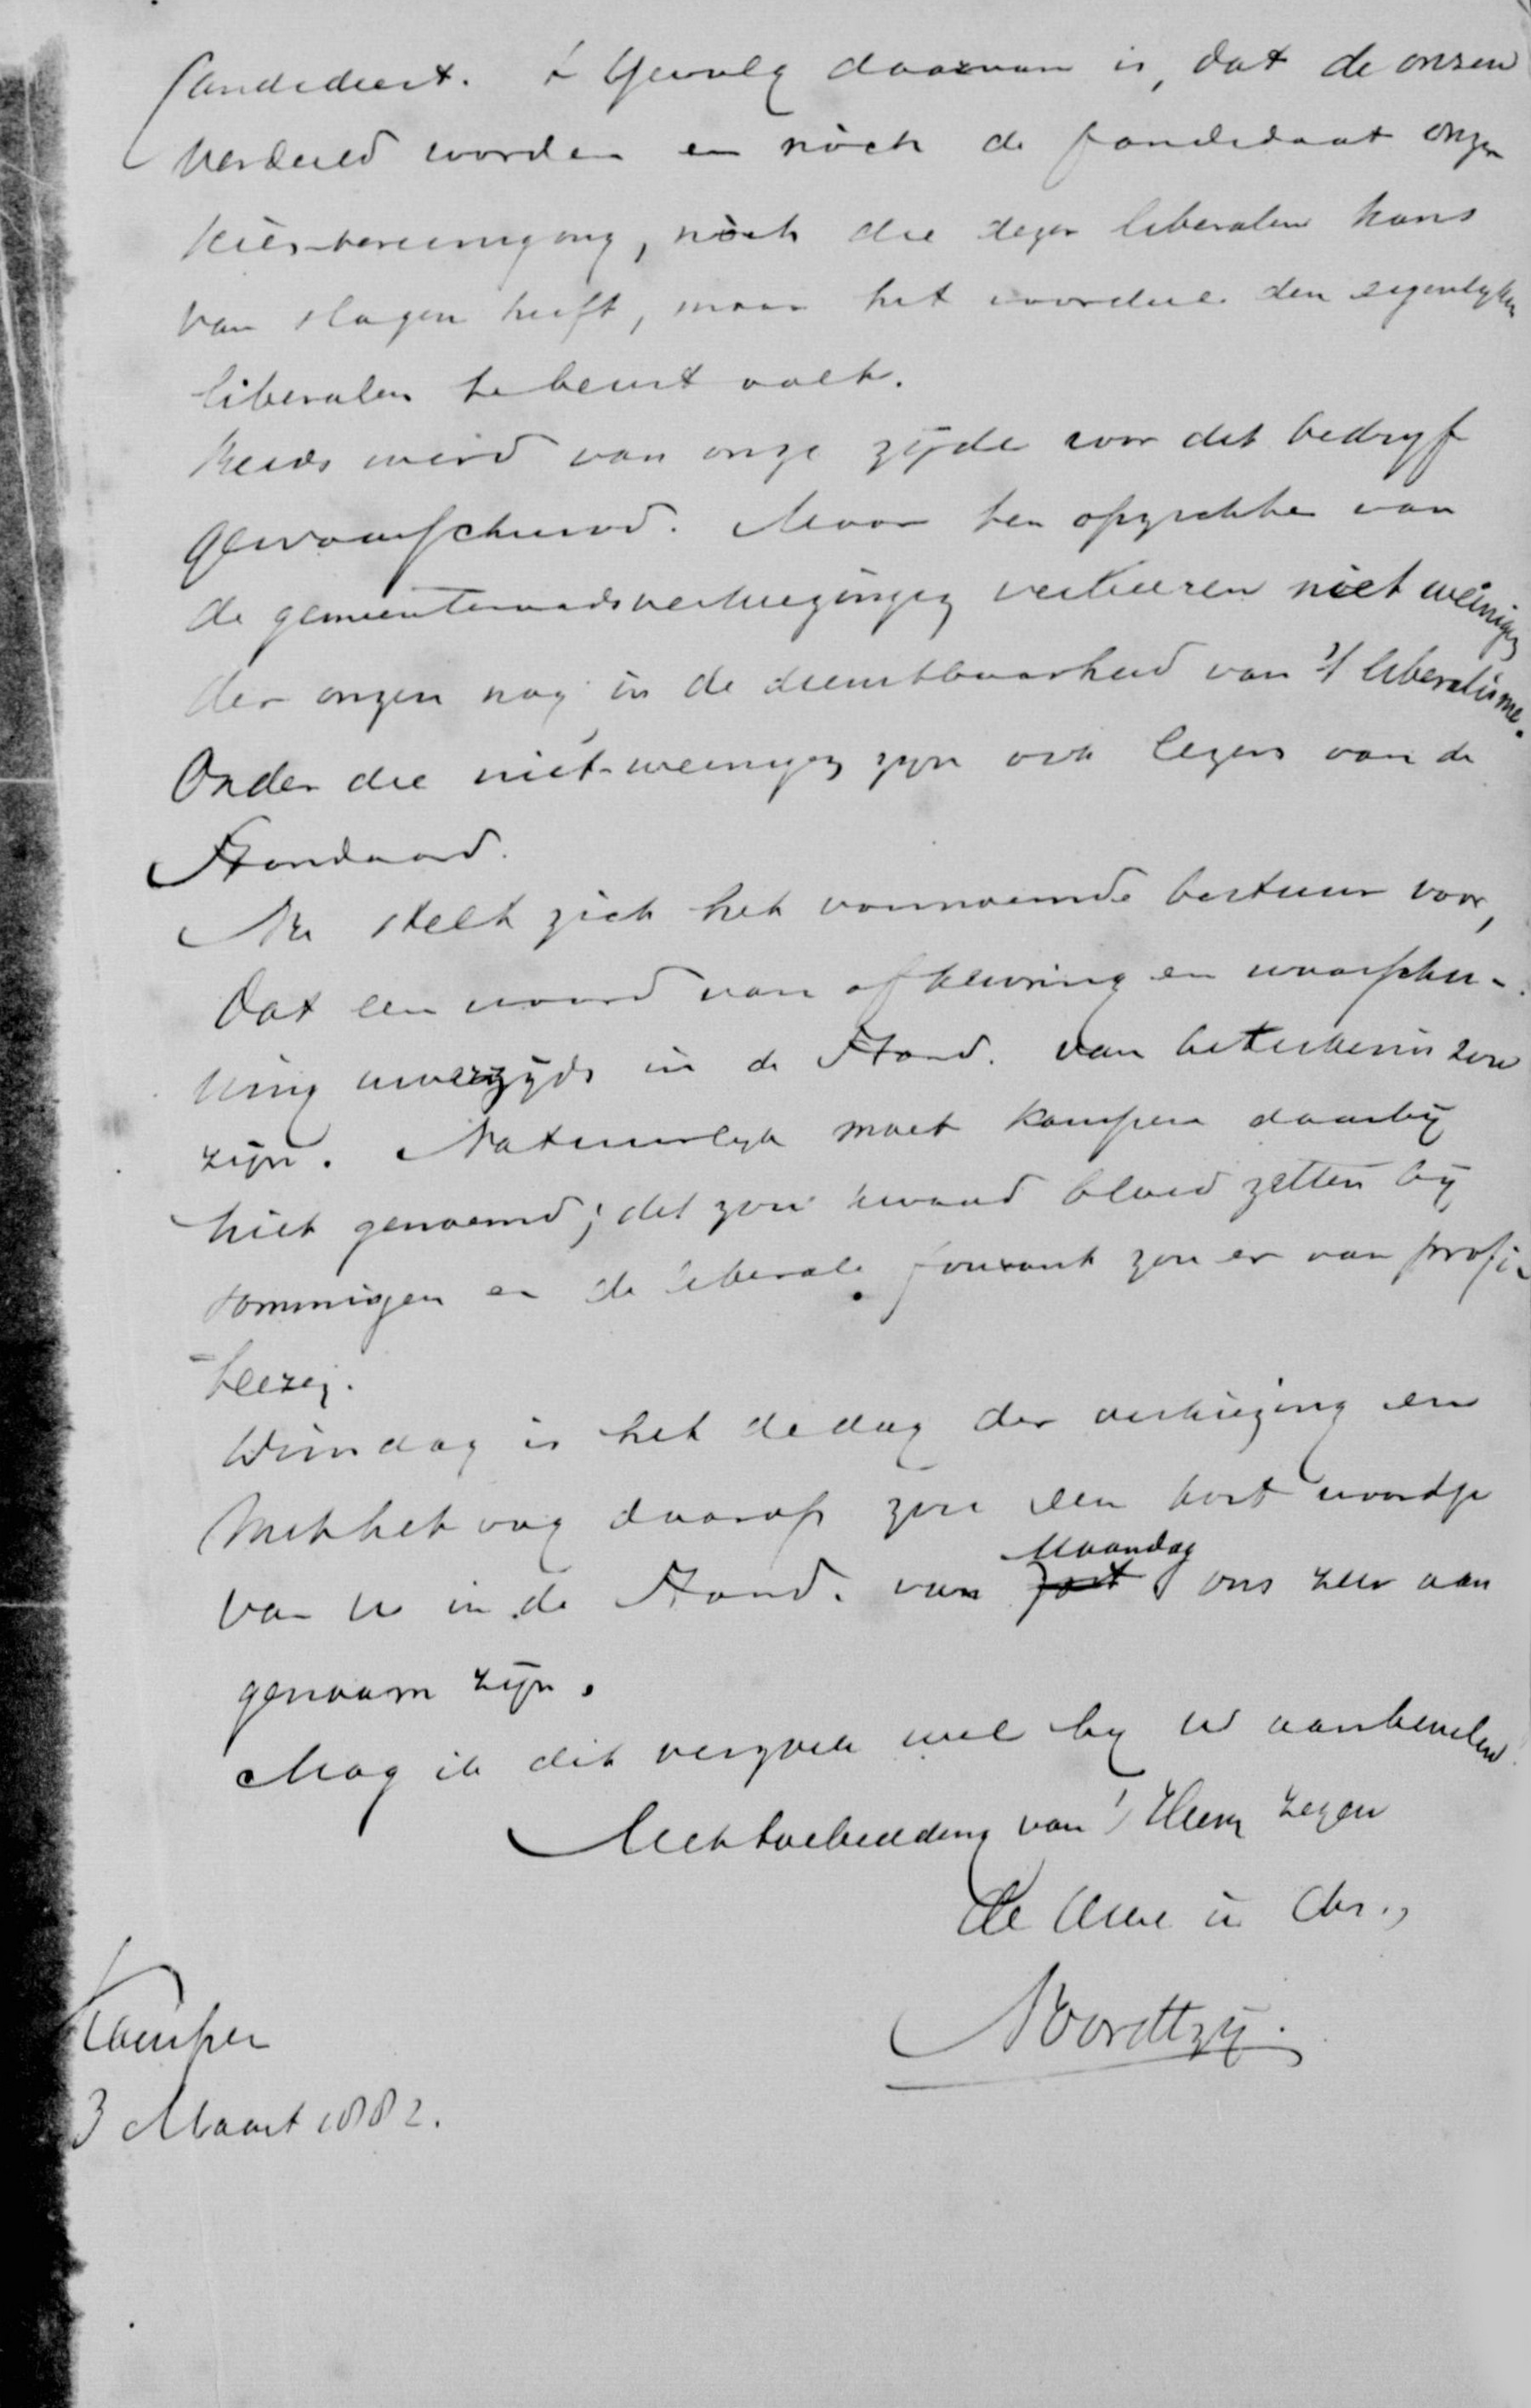 Candideert. 't Gevolg daarvan is, dat de onzen
verdeeld worden en nòch de kandidaat onzer
kiesvereeniging, nòch die dezer liberalen kans
van slagen heeft, maar het voordeel den eigenlyken
liberalen te beurt valt.
Reeds werd van onze zyde voor dit bedryf
gewaarschuwd. Maar ten opzichte van
de gemeenteraadsverkiezingen verkeeren niet weinigen
der onzen nog in de dienstbaarheid van 't liberalisme.
Onder die niet-weinigen zyn ook lezers van de
Standaard.
Nu stelt zich het voornoemde bestuur voor,
dat een woord van afkeuring en waarschu-
wing uwerzyds in de Stand. van beteekenis zou
zijn. Natuurlyk moet Kampen daarby
niet genoemd; dit zou kwaad bloed zetten by
sommigen en de liberale courant zou er van profi-
teeren.
Dinsdag is het de dag der verkiezing en
met het oog daarop zou een kort woordje
van U in de Stand. van Maandag ons zeer aan
genaam zijn.
Mag ik dit verzoek wel by U aanbevelen
Met toebidding van 's Heeren zegen
de Uwe in Chr.,
Noordtzy.
Kampen
3 Maart 1882.